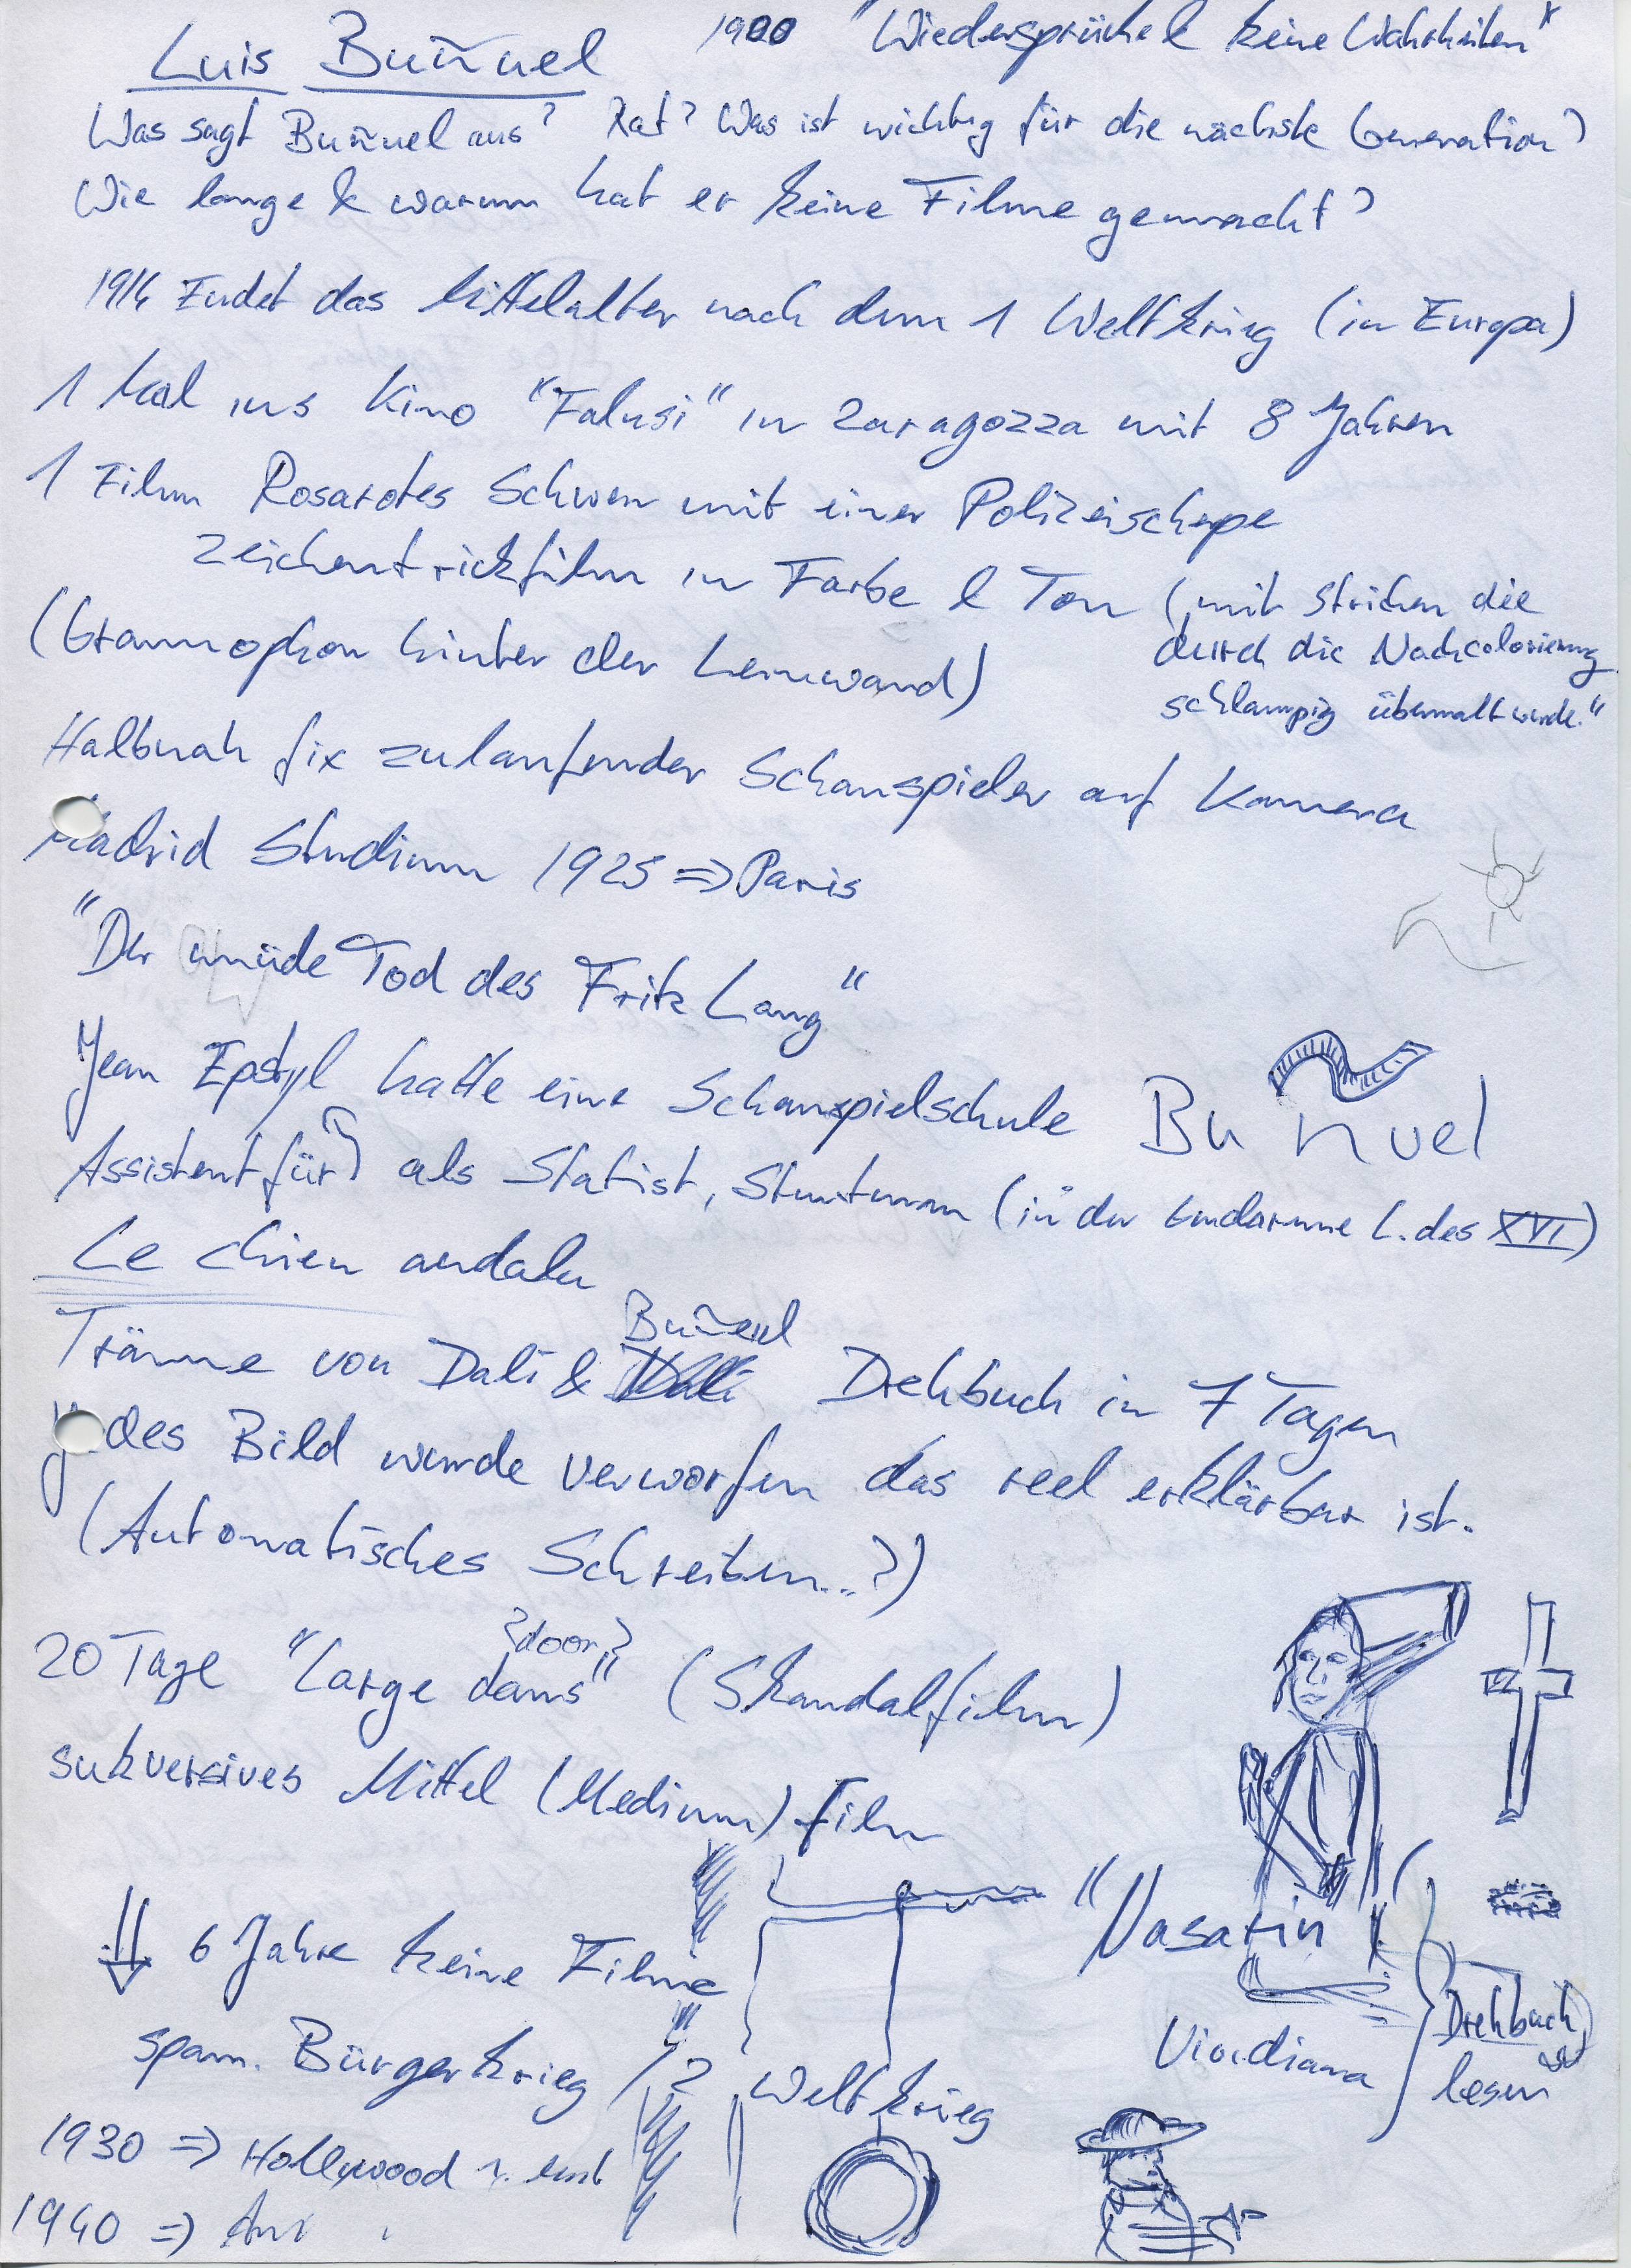 Luis Buñuel 1900 "Wiedersprüche & keine Wahrheiten"
Was sagt Buñuel aus? Rat? Was ist wichtig für die nächste Generation?
Wie lange & warum hat er keine Filme gemacht?
1914 Endet das Mittelalter nach dem 1 Weltkrieg (in Europa)
1 Mal ins Kino "Falusi" in Zaragozza mit 8 Jahren
1 Film Rosarotes Schwein mit einer Polizeischerpe
Zeichentrickfilm in Farbe & Ton (mit Strichen die
durch die Nachcolorierung
schlampig übermalt wurde."
(Grammophon hinter der Leinwand)
Halbnah fix zulaufender Schauspieler auf Kamera
Madrid Studium 1925 => Paris
"Der müde Tod des Fritz Lang"
Jean hatte eine Schauspielschule
Buñuel
Assistent für als Statist, Stuntman (in der L. des XVI)
Le chien andalu
Träume von Dali & Buñuel Drehbuch in 7 Tagen
jedes Bild wurde verworfen das reel erklärbar ist.
(Automatisches Schreiben..?)
20 Tage "Large dans" ?door? (Skandalfilm)
subversives Mittel (Medium) Film
6 Jahre keine Filme
"Nasarin"
span. Bürgerkrieg / 2 Weltkrieg
Viridiana
Drehbuch
lesen
1930 => Hollywood
1940 =>